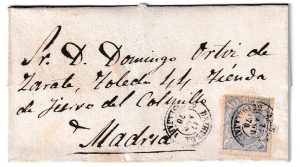 Sr. D. Domingo Ortiz de
Zarate, Toledo 44 Tienda
de Yerro del Colmillo
Madrid